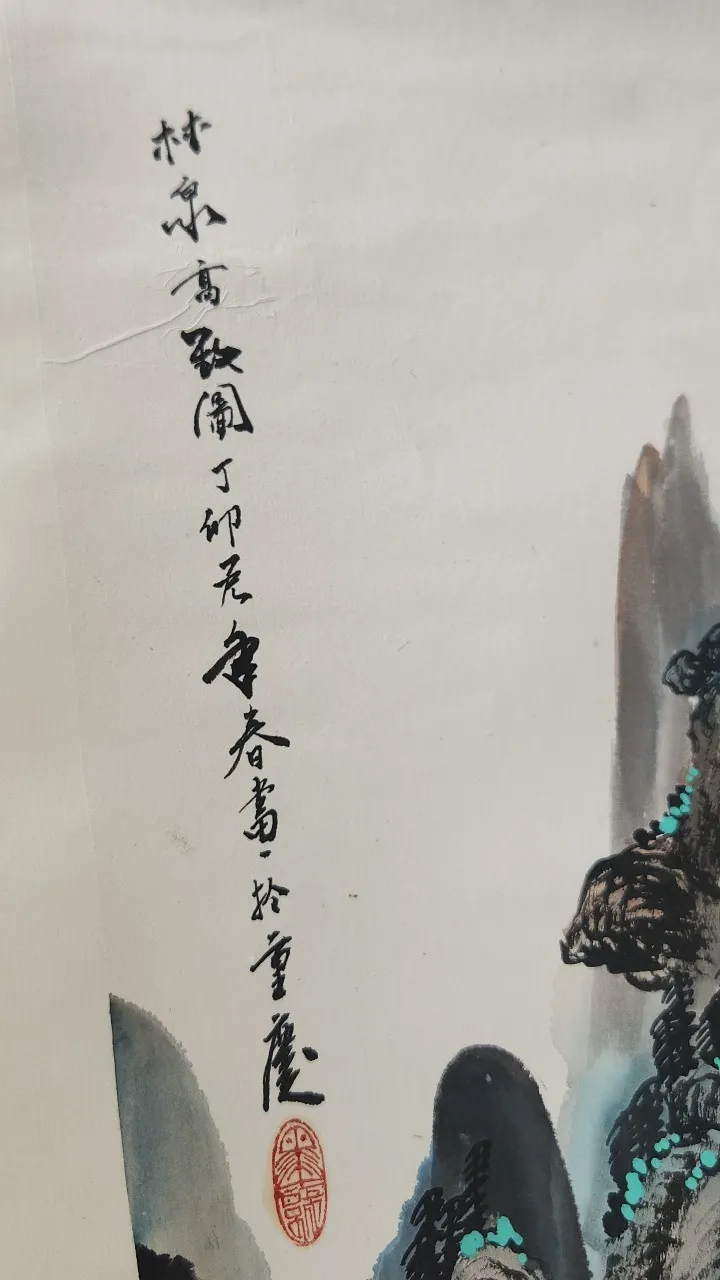 林泉高致圖丁卯君年春書於重慶